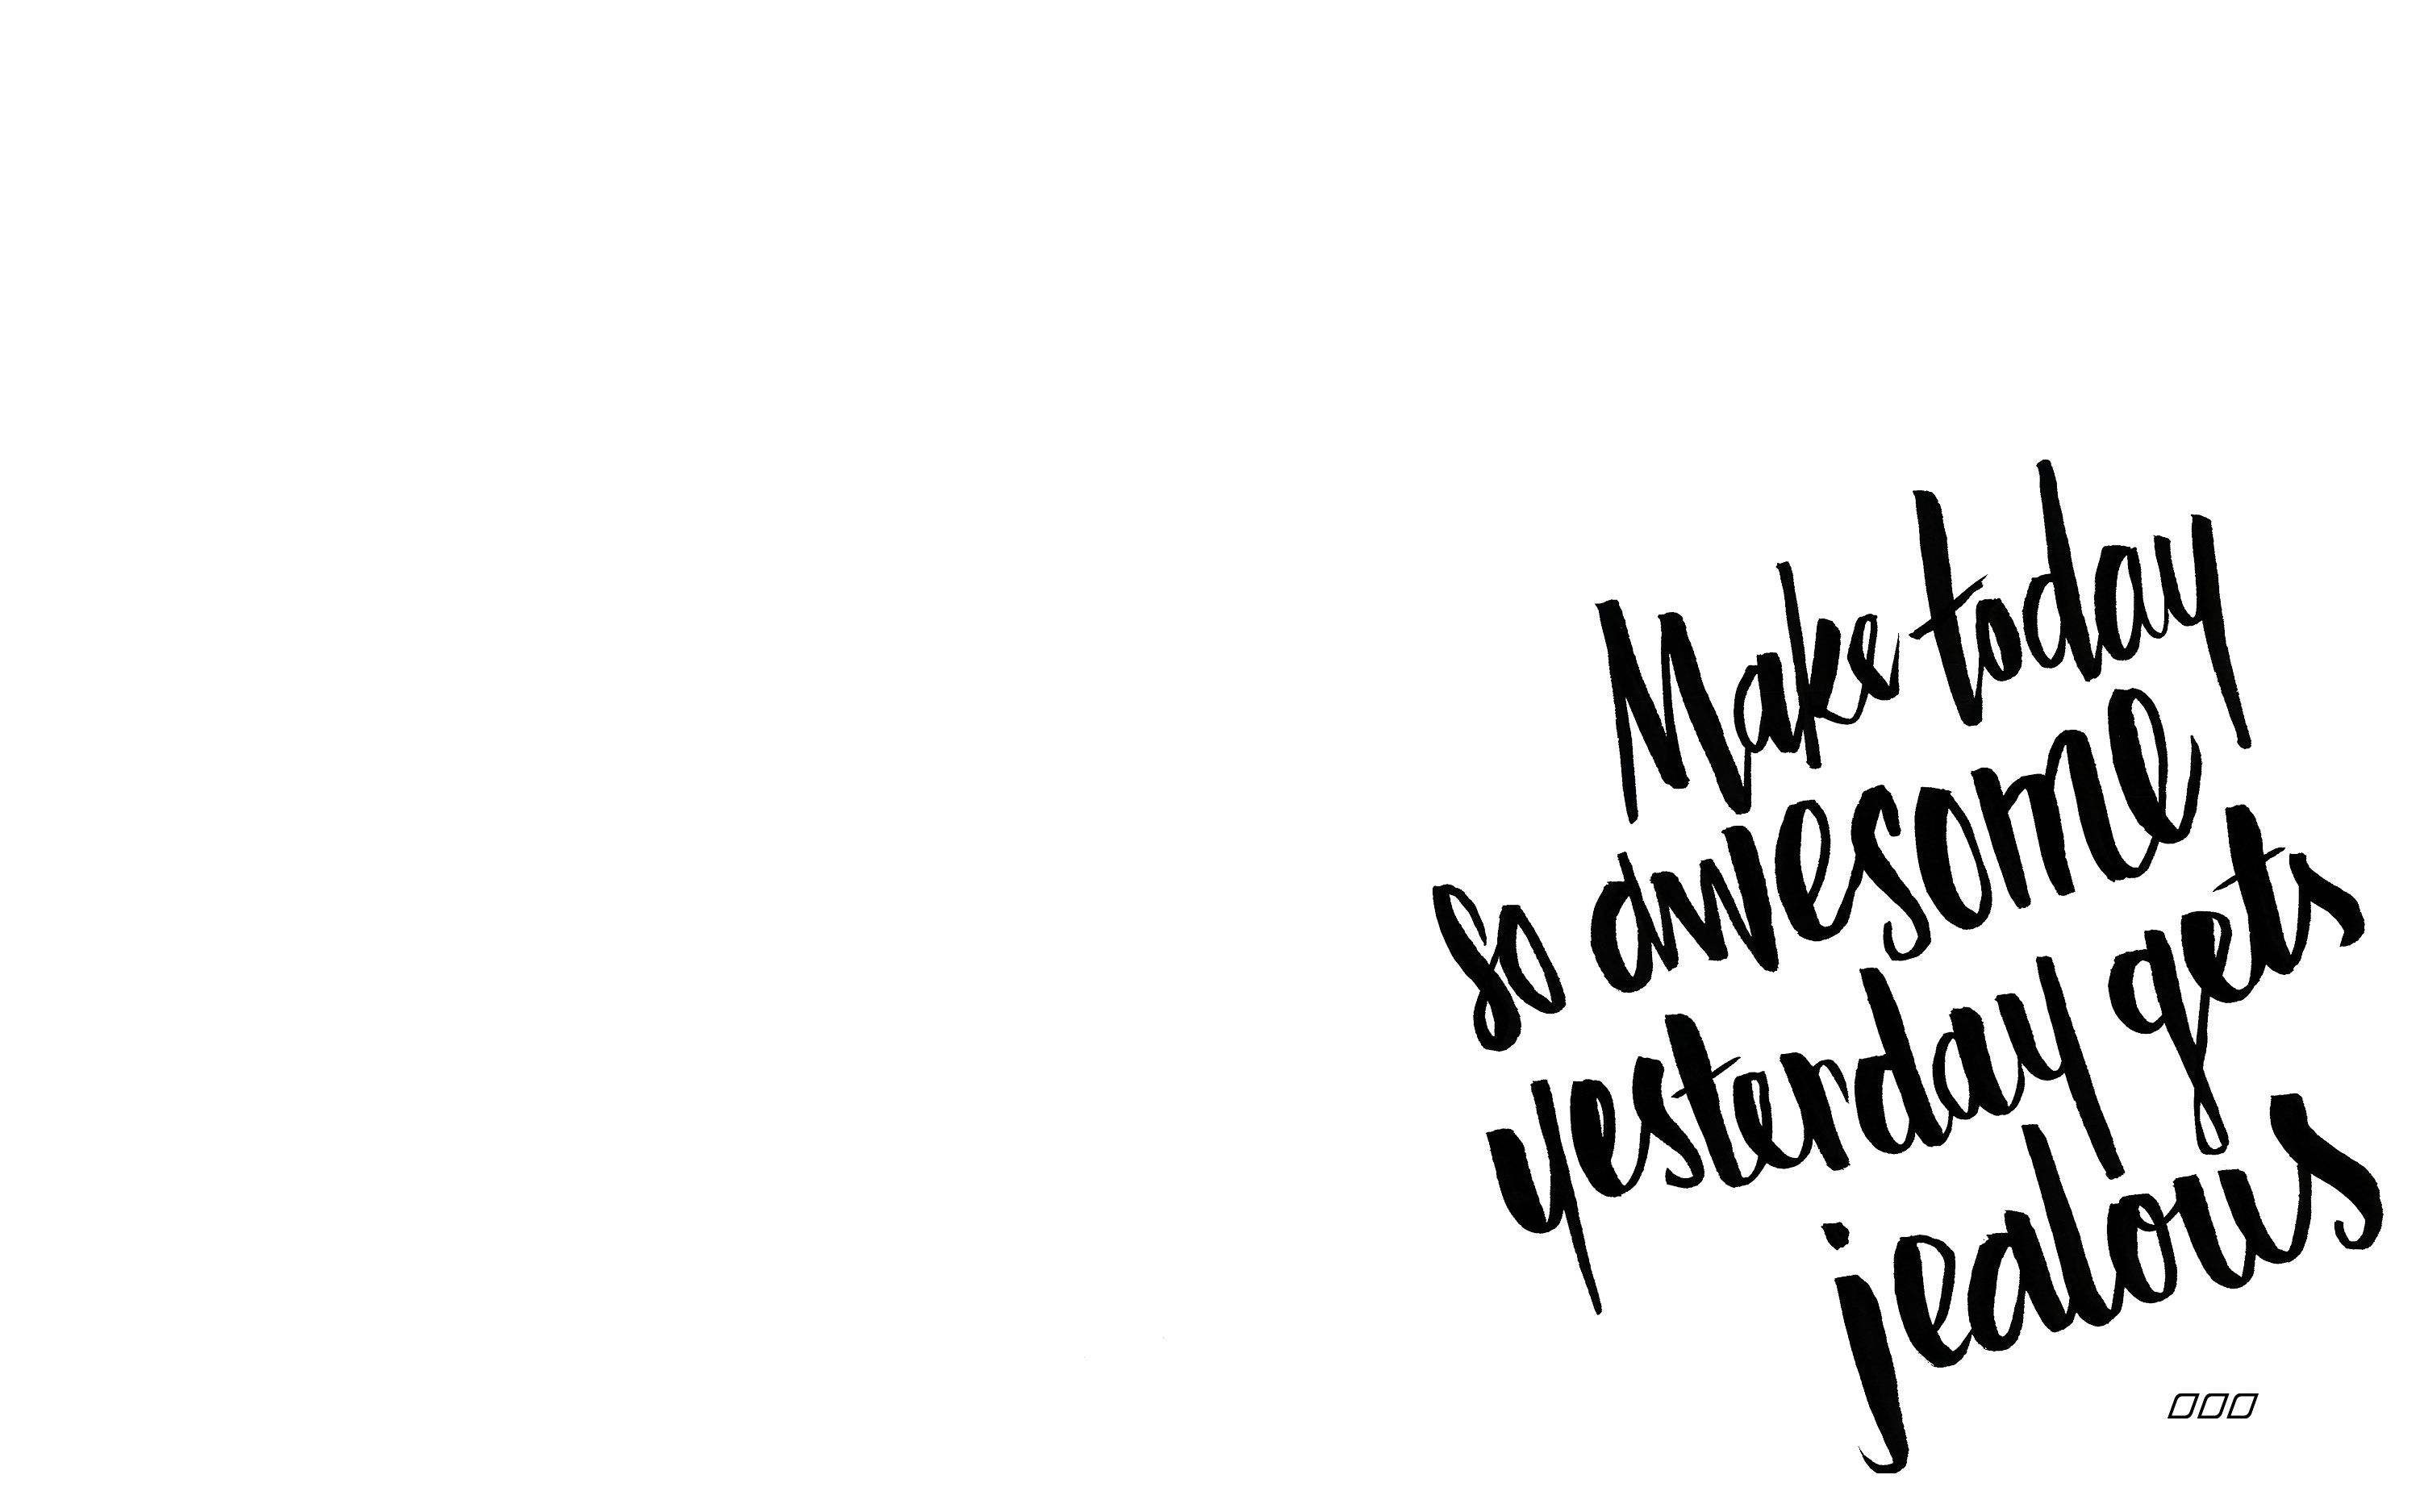 Make today
so awesome
yesterday gets
jealous